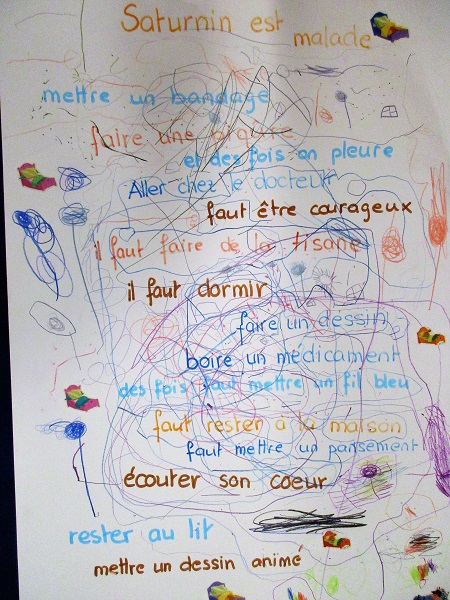 Saturnin est malade
mettre un bandage
faire une piqûre
et des fois on pleure
Aller chez le docteur
faut être courageux
il faut faire de la tisane
il faut dormir
faire un dessin
boire un médicament
des fois faut mettre un fil bleu
faut rester à la maison
faut mettre un pansement
écouter son coeur
rester au lit
mettre un dessin animé